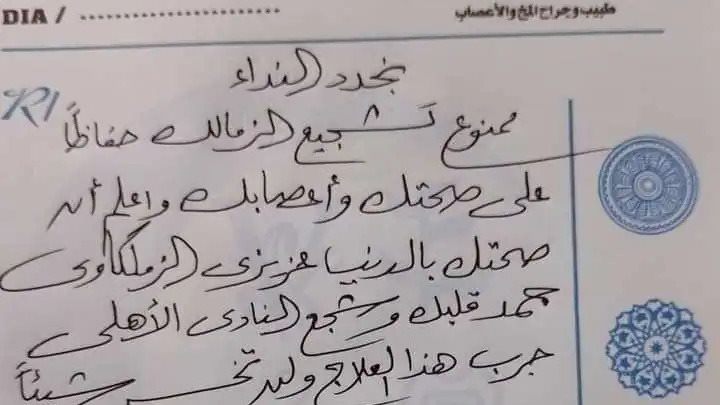 DIA / ........................ طبيب وجراح المخ والأعصاب
نجدد النداء
R/
ممنوع تشجيع الزمالك حفاظاً
على صحتك وأعصابك واعلم أن
صحتك بالدنيا عزيزى الزملكاوى
جمد قلبك وشجع النادى الأهلى
جرب هذا العلاج ولن تخسر شيئاً